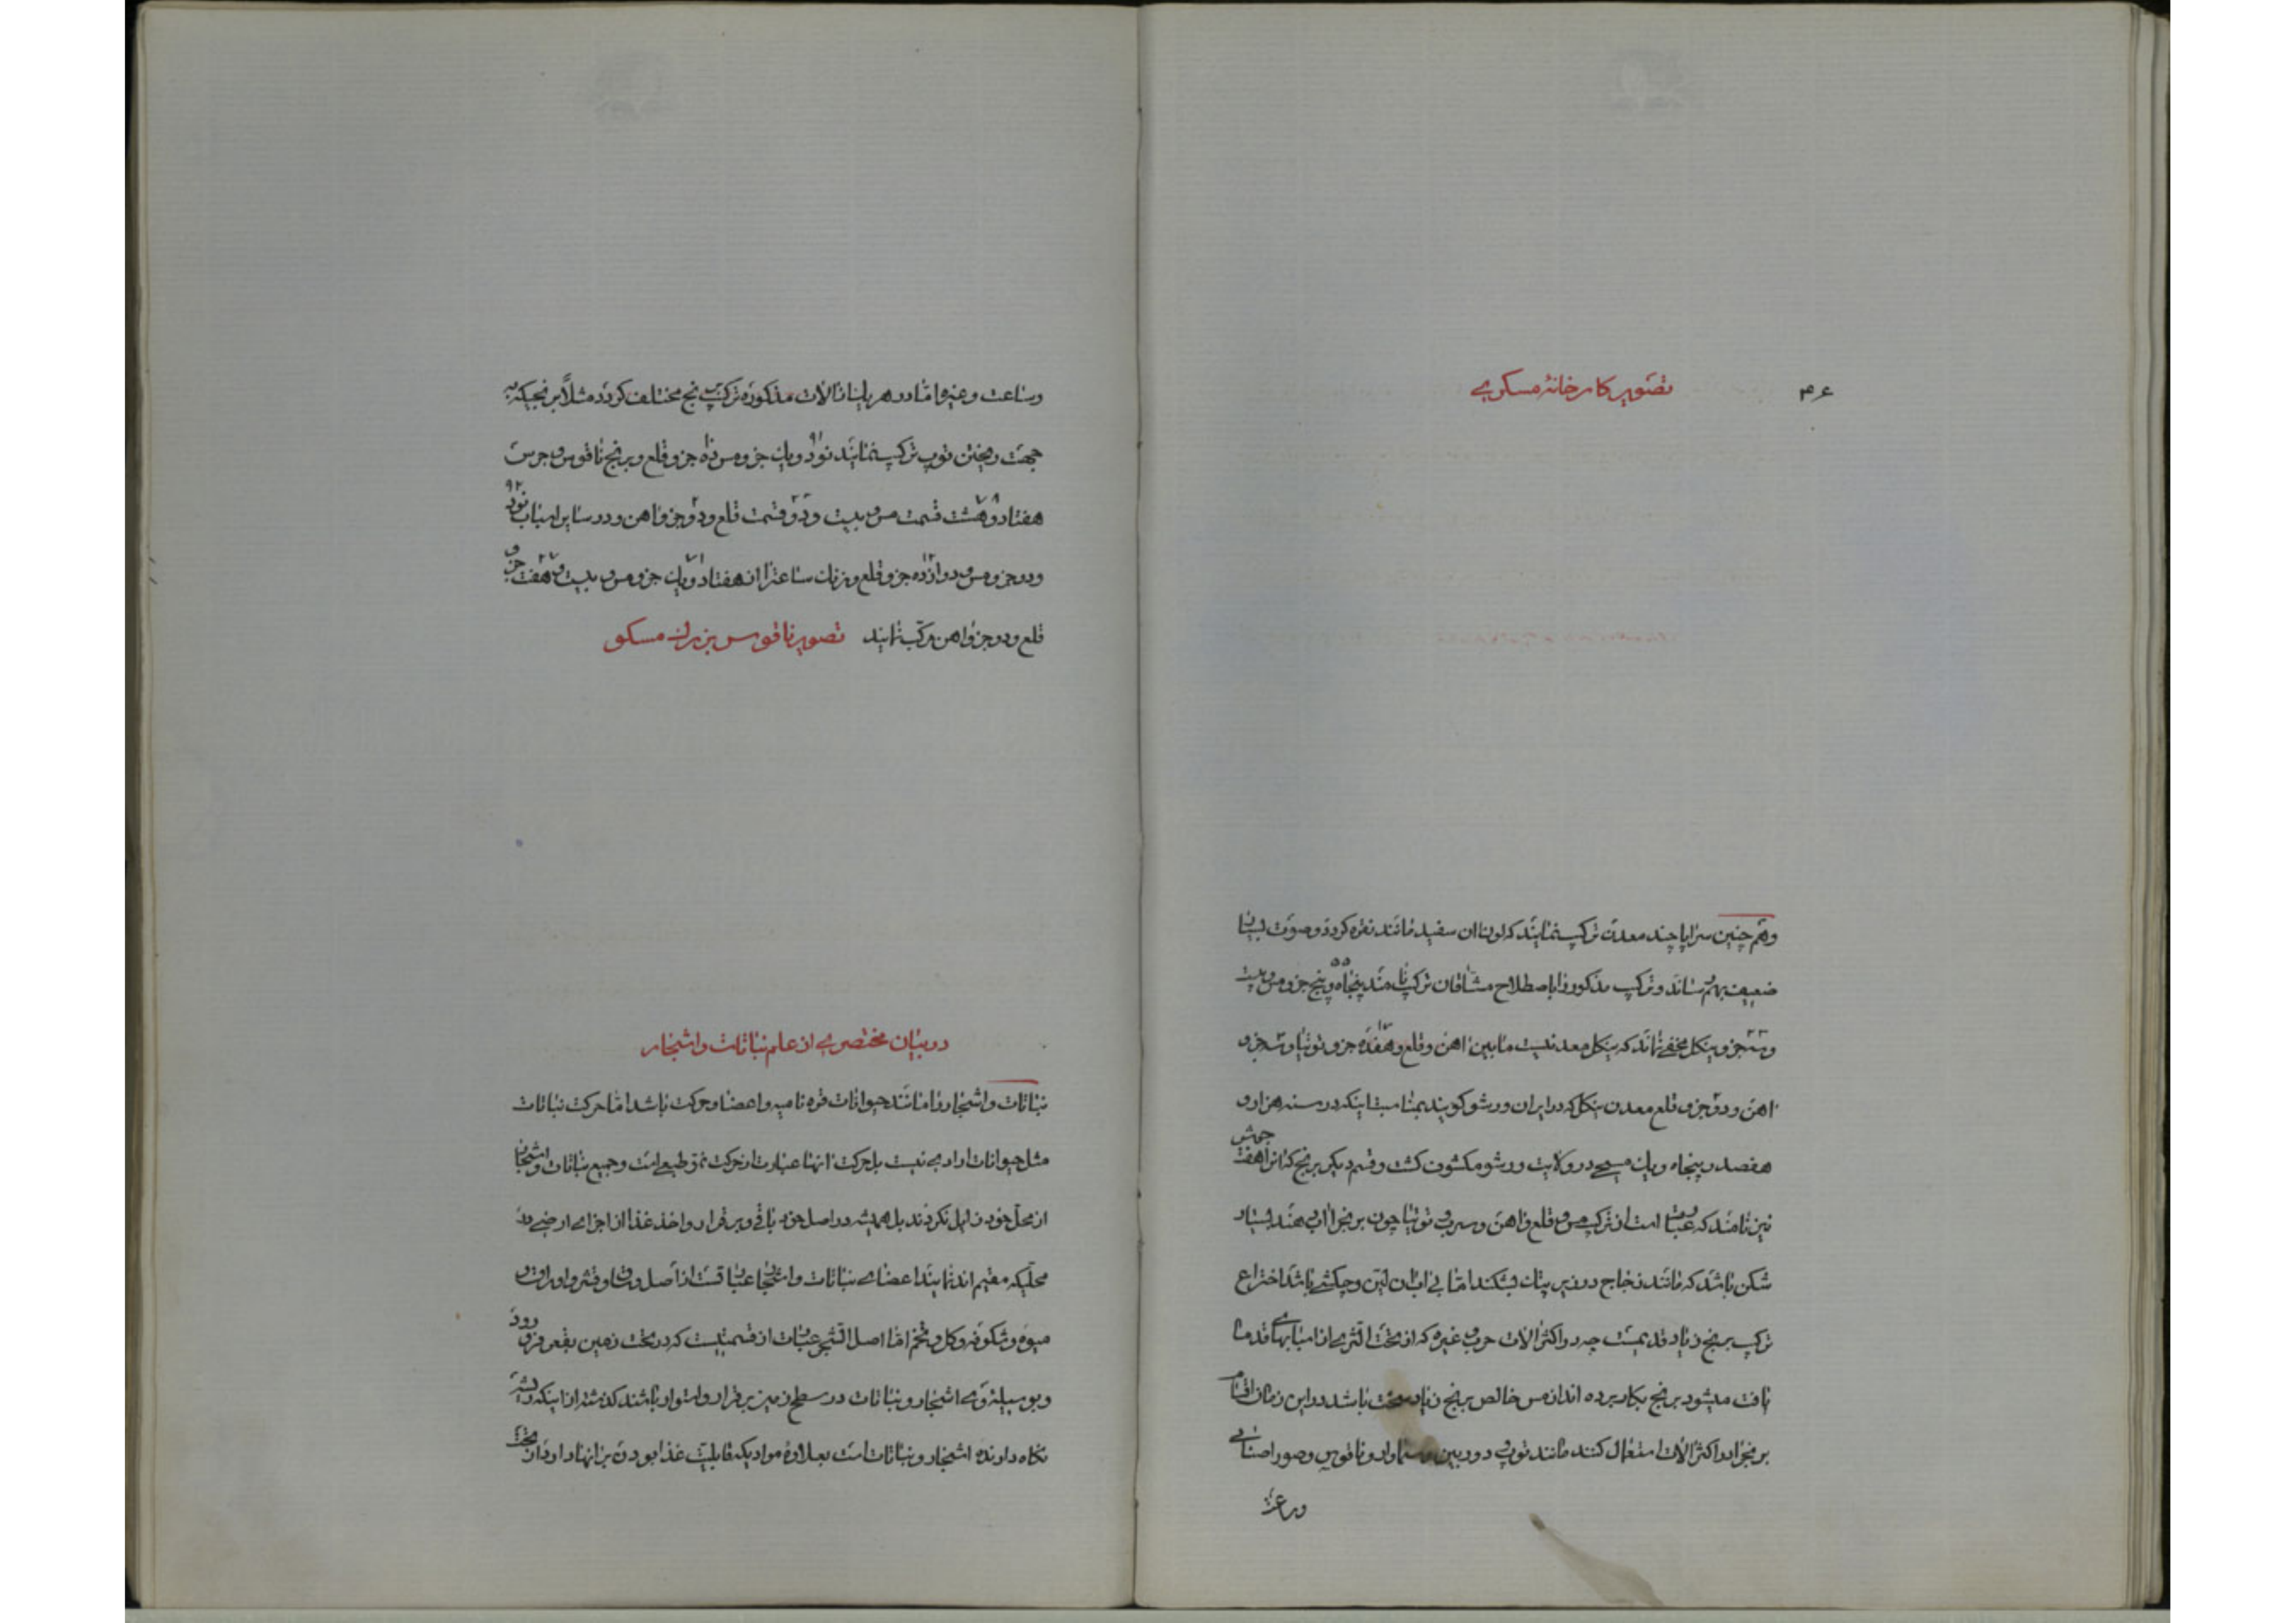 ۴۶
تصویر کارخانهٔ مسکری
وهم چنین سرایا چند معدن ترکیب نمایند که لون ان سفید مانند نقره کردد و صوت بسیار
ضعیف بهم رساند و ترکیب مذکور را باصطلاح مشاقان ترکیب نامند پنجاه و پنج جزو مس و بیست
و سه جزو نیکل مخفی نماند که نیکل معدنیست مابین اهن و قلع و هفده جزو توتیا و سه جزو
اهن و دو جزو قلع معدن نیکل که در ایران ورشو کویند بمناسبت اینکه در سنه هزار و
هفصد و پنجاه و یک مسیحی در ولایت ورشو مکشون کشت و قسم دیکر برنج که انرا هفت جوش
نیز نامند که عبارت است از ترکیب مس و قلع و اهن و سرب و توتیا چون برنجرا اب دهند بسیار
شکن باشد که مانند زجاج در زیر پتک بشکند اما بی اب ان لین و چکشی باشد اختراع
ترکیب برنج زیاد قدیمست چه در اکثر الات حرب و غیره که از تحت الثری از امتای بهای قدما
یافت میشود برنج بکار برده اند از مس خالص برنج زیاد سخت باشد در این زمان اقسام
برنجرا در اکثر الات استعمال کنند مانند توپ و دوربین و سماور و ناقوس و صور اصنامی
وساعت
وساعت و غیره اما در هر یک از الات مذکوره ترکیب برنج مختلف کردد مثلاً برنجیکه به
جهت ریختن توپ ترکیب نمایند نود و یک جزو مس نه جزو قلع و برنج ناقوس و جرس
هفتاد و هشت قسمت مس و بیست و دو قسمت قلع و دو جزو اهن و در سایر اسباب نود
و دو جزو مس و دوازده جزو قلع و زنک ساعترا از هفتاد و یک جزو مس و بیست و هفت جزو
قلع و دو جزو اهن مرکب نمایند تصویر ناقوس بزرک مسکو
در بیان مختصری از علم نباتات و اشجار
نباتات و اشجار را مانند حیوانات قوه نامیه و اعضا و حرکت باشد اما حرکت نباتات
مثل حیوانات ارادی نیست بل حرکت انها عبارت از حرکت نمو طبیعی است و جمیع نباتات و اشجار
از محل خود زایل نکردند بل همیشه در اصل خود باقی و برقرار و اخذ غذا از اجزای ارضی در
محلیکه مقیم اند نمایند اعضای نباتات و اشجار عبارتست از اصل و ساق و قشر و اوراق و
میوه و شکوفه و کل و تخم اما اصل الشجر عبارت از قسمتیست که در تحت زمین بقعر فرو رود
و بوسیله وی اشجار و نباتات در سطح زمین برقرار و استوار باشند کذشته از اینکه ریشه
نکاه دارنده اشجار و نباتات است بعلاوه موادیکه قابلیت غذا بودن برانها را دارد